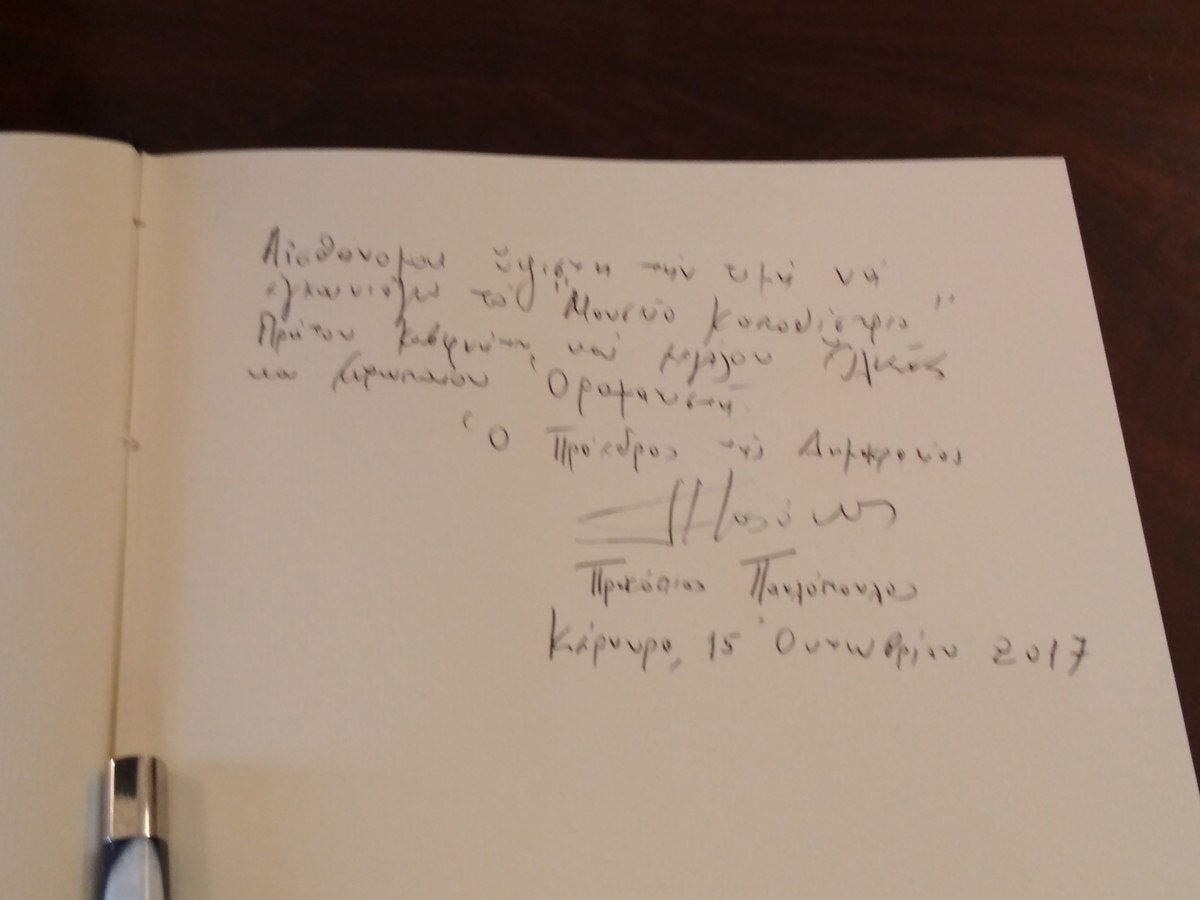 Αἰσθάνομαι ὕψιστη τήν τιμή νά
ἐγκαινιάζω τό "Μουσεῖο Καποδίστρια"
Πρώτου Κυβερνήτη καί μεγάλου
καί Εὐρωπαίου Ὁραματιστῆ.
Ὁ Πρόεδρος τῆς Δημοκρατίας
Προκόπιος Παυλόπουλος
Κέρκυρα, 15 Ὀκτωβρίου 2017